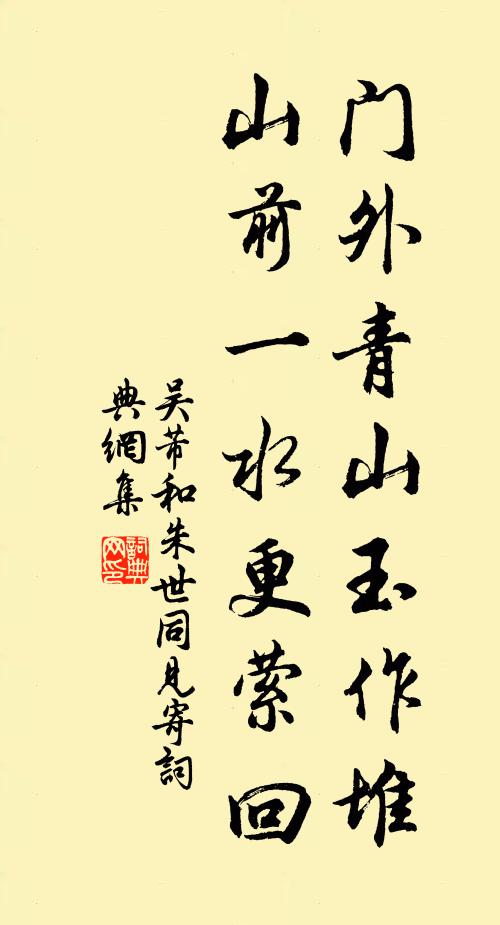 门外青山玉作堆
山前一水更萦回
吴芾和朱世同见寄詞
典網集
詞典
网印